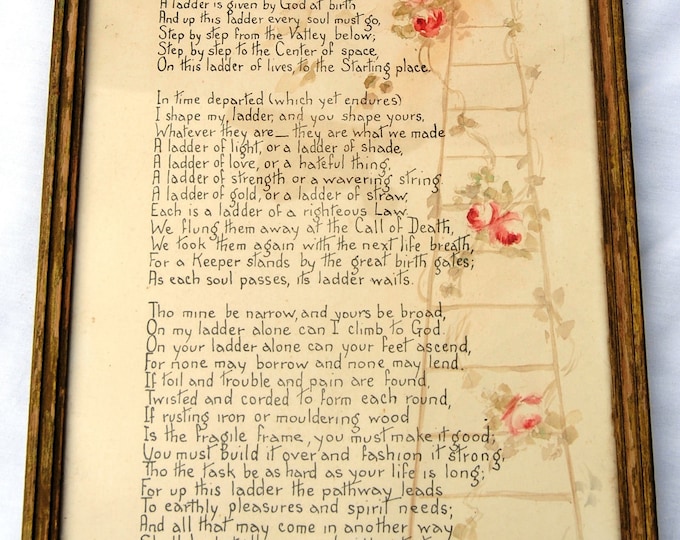 A ladder is given by God at birth
And up this ladder every soul must go,
Step by step from the Valley below;
Step by step to the Center of space,
On this ladder of lives, to the Starting place.
In time departed (which yet endures)
I shape my ladder, and you shape yours,
Whatever they are — they are what we made
A ladder of light, or a ladder of shade,
A ladder of love, or a hateful thing,
A ladder of strength or a wavering string.
A ladder of gold, or a ladder of straw,
Each is a ladder of a righteous Law.
We flung them away at the Call of Death,
We took them again with the next life breath,
For a Keeper stands by the great birth gates;
As each soul passes, its ladder waits.
Tho mine be narrow, and yours be broad,
On my ladder alone can I climb to God.
On your ladder alone can your feet ascend,
For none may borrow and none may lend.
If toil and trouble and pain are found,
Twisted and corded to form each round,
If rusting iron or mouldering wood
Is the fragile frame, you must make it good;
You must build it over and fashion it strong,
Tho the task be as hard as your life is long;
For up this ladder the pathway leads
To earthly pleasures and spirit needs;
And all that may come in another way